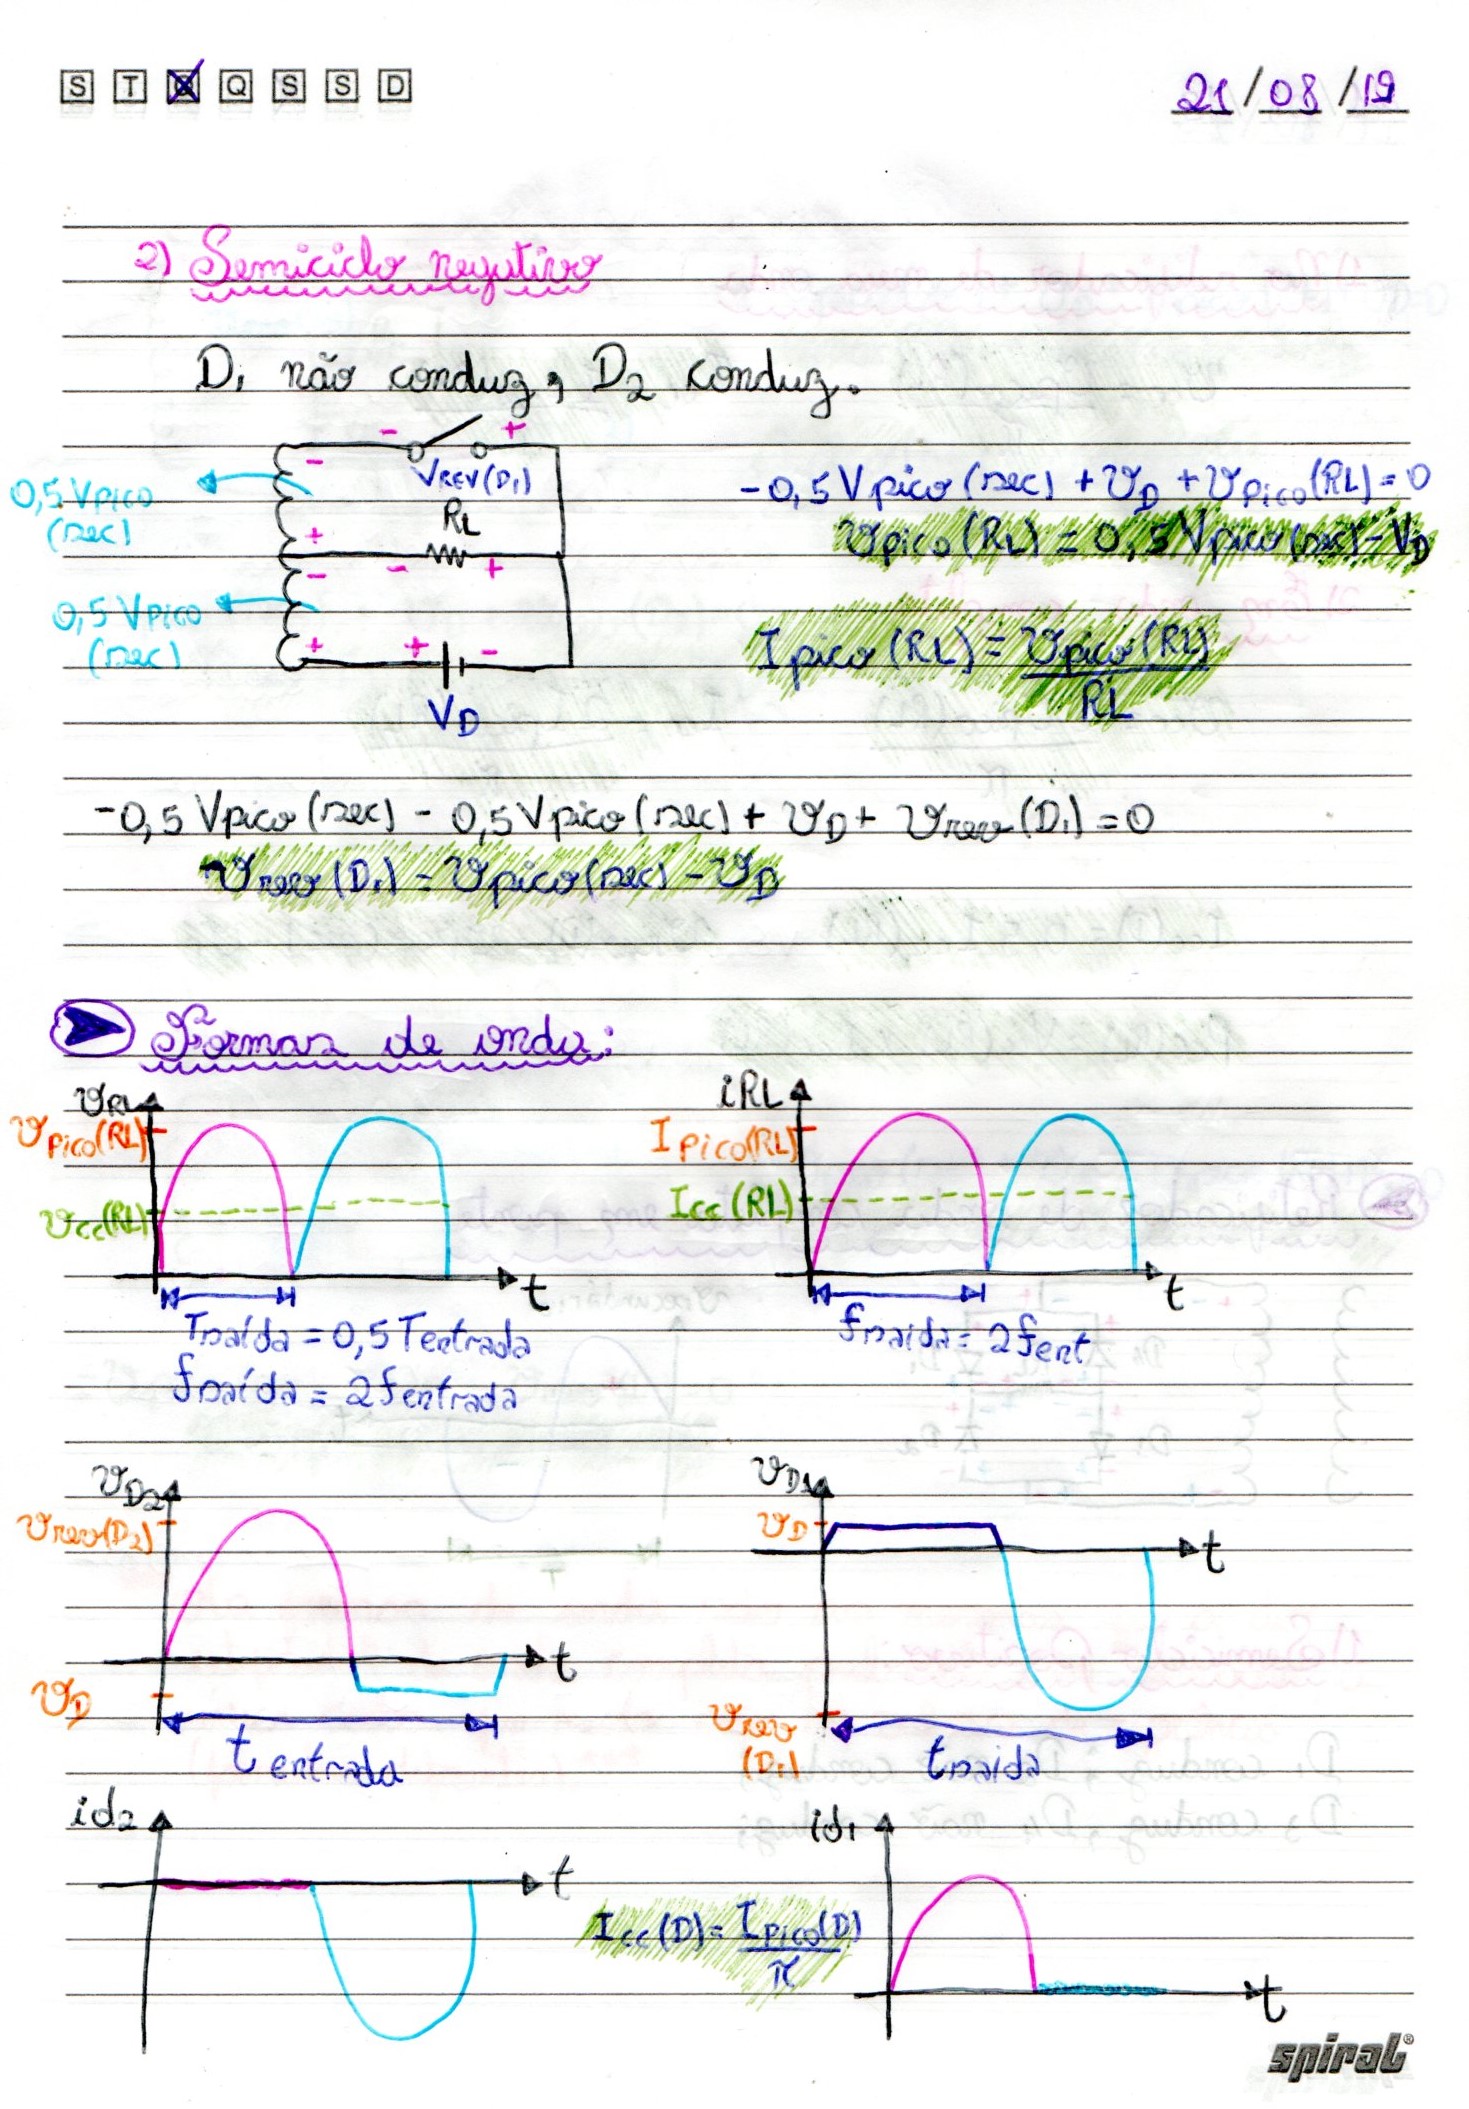 S T Q Q S S D
21/08/19
2) Semiciclo negativo
D1 não conduz, D2 conduz.
- +
-
VREV(D1)
0,5 Vpico
(sec)
RL
+
- +
-
0,5 Vpico
(sec)
+ + -
VD
-0,5 Vpico (sec) + VD + Vpico (RL) = 0
Vpico (RL) = 0,5 Vpico (sec) - VD
Ipico (RL) = Vpico (RL)
RL
-0,5 Vpico (sec) - 0,5 Vpico (sec) + VD + Vrev (D1) = 0
Vrev (D1) = Vpico (sec) - VD
Formas de onda:
VRL
Vpico(RL)
Vcc(RL)
t
Tsaída = 0,5 Tentrada
fsaída = 2 fentrada
iRL
Ipico(RL)
Icc (RL)
t
fsaída = 2 fent
VD2
Vrev(D2)
t
VD
t entrada
VD1
VD
t
Vrev
(D1)
tsaída
id2
t
Icc (D) = Ipico(D)
π
id1
t
spiral®